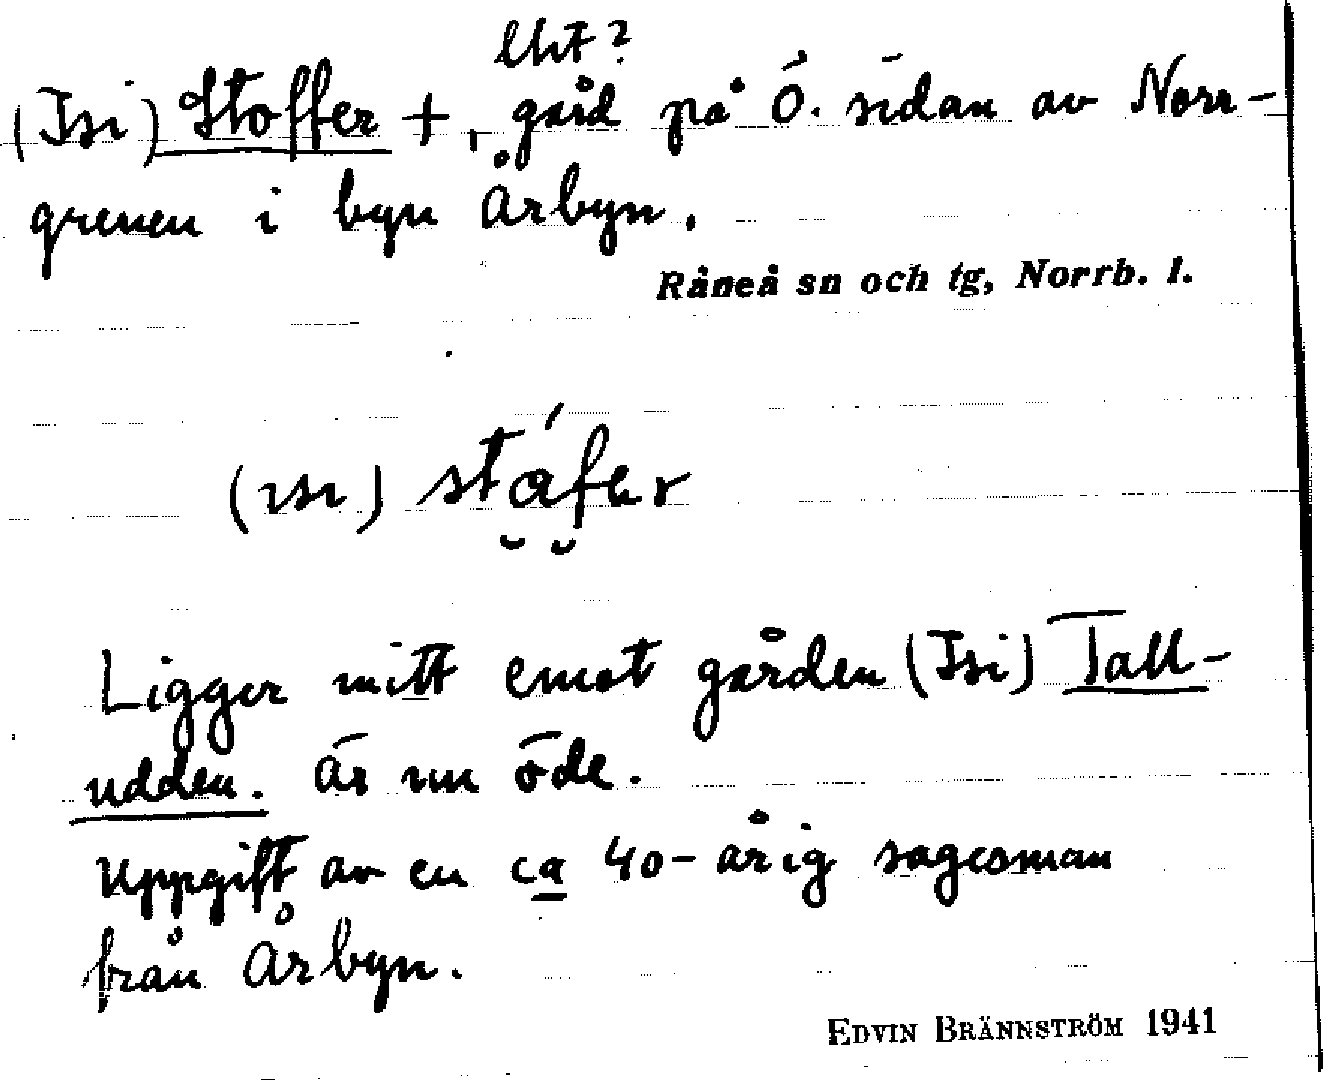 lht?
(Isi) Stoffer +, gård på Ö. sidan av Norr-
grenen i byn Årbyn.
Råneå sn och tg, Norrb. l.
(ɪsɪ) stáfer
Ligger mitt emot gården (Isi) Tall-
udden. Är nu öde.
Uppgift av en ca 40-årig sagesman
från Årbyn.
EDVIN BRÄNNSTRÖM 1941